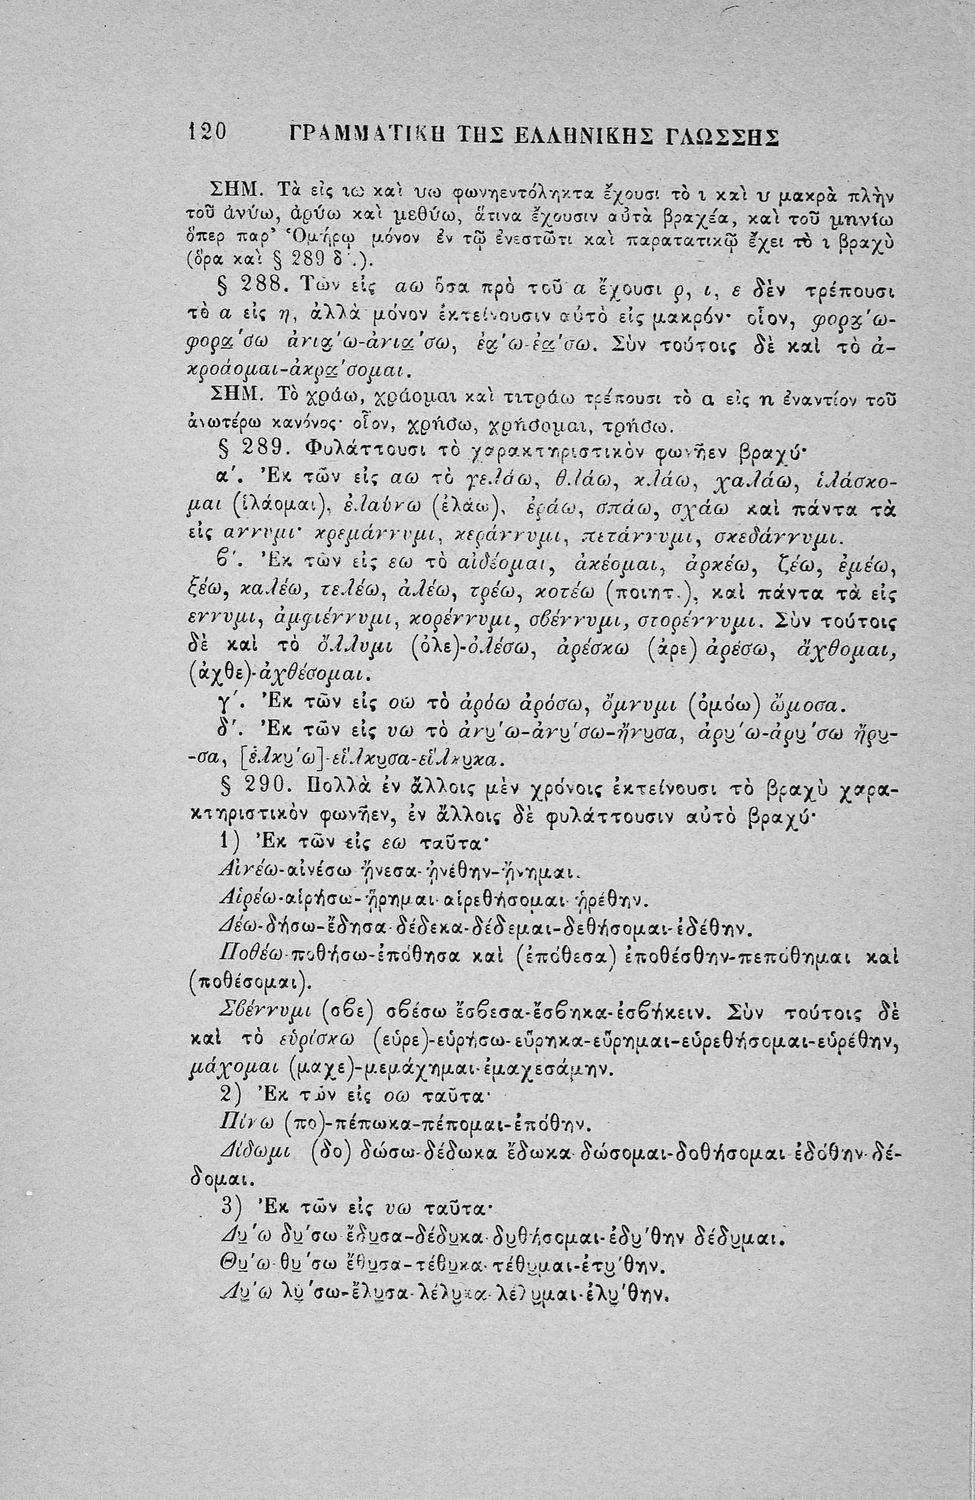 120 ΓΡΑΜΜΑΤΙΚΗ ΤΗΣ ΕΛΛΗΝΙΚΗΣ ΓΛΩΣΣΗΣ
ΣΗΜ. Τὰ εἰς ιω καὶ υω φωνηεντόληκτα ἔχουσι τὸ ι καὶ υ μακρὰ πλὴν
τοῦ ἀνύω, ἀρύω καὶ μεθύω, ἅτινα ἔχουσιν αὐτὰ βραχέα, καὶ τοῦ μηνίω
ὅπερ παρ' Ὁμήρῳ μόνον ἐν τῷ ἐνεστῶτι καὶ παρατατικῷ ἔχει τὸ ι βραχὺ
(ὅρα καὶ § 289 δ΄.).
§ 288. Τῶν εἰς αω ὅσα πρὸ τοῦ α ἔχουσι ρ, ι, ε δὲν τρέπουσι
τὸ α εἰς η, ἀλλὰ μόνον ἐκτείνουσιν αὐτὸ εἰς μακρόν· οἷον, φορα̮΄ω-
φορα̱΄σω ἀνια̮΄ω-ἀνια̱΄σω, ἐα̮΄ω-ἐα̱΄σω. Σὺν τούτοις δὲ καὶ τὸ ἀ-
κροάομαι-ἀκρα̱΄σομαι.
ΣΗΜ. Τὸ χράω, χράομαι καὶ τιτράω τρέπουσι τὸ α εἰς η ἐναντίον τοῦ
ἀνωτέρω κανόνος· οἷον, χρήσω, χρήσομαι, τρήσω.
§ 289. Φυλάττουσι τὸ χαρακτηριστικὸν φωνῆεν βραχύ·
α΄. Ἐκ τῶν εἰς αω τὸ γελάω, θλάω, κλάω, χαλάω, ἱλάσκο-
μαι (ἱλάομαι), ἐλαύνω (ἐλάω), ἐράω, σπάω, σχάω καὶ πάντα τὰ
εἰς αννυμι· κρεμάννυμι, κεράννυμι, πετάννυμι, σκεδάννυμι.
β΄. Ἐκ τῶν εἰς εω τὸ αἰδέομαι, ἀκέομαι, ἀρκέω, ζέω, ἐμέω,
ξέω, καλέω, τελέω, ἀλέω, τρέω, κοτέω (ποιητ.), καὶ πάντα τὰ εἰς
εννυμι, ἀμφιέννυμι, κορέννυμι, σβέννυμι, στορέννυμι. Σὺν τούτοις
δὲ καὶ τὸ ὄλλυμι (ὀλε)-ὀλέσω, ἀρέσκω (ἀρε) ἀρέσω, ἄχθομαι,
(ἀχθε)-ἀχθέσομαι.
γ΄. Ἐκ τῶν εἰς οω τὸ ἀρόω ἀρόσω, ὄμνυμι (ὀμόω) ὤμοσα.
δ΄. Ἐκ τῶν εἰς υω τὸ ἀνυ̮΄ω-ἀνυ̮΄σω-ἤνυ̮σα, ἀρυ̮΄ω-ἀρυ̮΄σω ἤρυ̮-
-σα, [ἑλκυ̮΄ω]-εἵλκυ̮σα-εἵλκυ̮κα.
§ 290. Πολλὰ ἐν ἄλλοις μὲν χρόνοις ἐκτείνουσι τὸ βραχὺ χαρα-
κτηριστικὸν φωνῆεν, ἐν ἄλλοις δὲ φυλάττουσιν αὐτὸ βραχύ·
1) Ἐκ τῶν εἰς εω ταῦτα·
Αἰνέω-αἰνέσω ᾔνεσα-ᾐνέθην-ᾔνημαι.
Αἱρέω-αἱρήσω-ᾕρημαι-αἱρεθήσομαι ᾑρέθην.
Δέω-δήσω-ἔδησα-δέδεκα-δέδεμαι-δεθήσομαι-ἐδέθην.
Ποθέω-ποθήσω-ἐπόθησα καὶ (ἐπόθεσα) ἐποθέσθην-πεπόθημαι καὶ
(ποθέσομαι).
Σβέννυμι (σβε) σβέσω ἔσβεσα-ἔσβηκα-ἐσβήκειν. Σὺν τούτοις δὲ
καὶ τὸ εὑρίσκω (εὑρε)-εὑρήσω-εὕρηκα-εὕρημαι-εὑρεθήσομαι-εὑρέθην,
μάχομαι (μαχε)-μεμάχημαι-ἐμαχεσάμην.
2) Ἐκ τῶν εἰς οω ταῦτα·
Πίνω (πο)-πέπωκα-πέπομαι-ἐπόθην.
Δίδωμι (δο) δώσω-δέδωκα ἔδωκα-δώσομαι-δοθήσομαι ἐδόθην-δέ-
δομαι.
3) Ἐκ τῶν εἰς υω ταῦτα·
Δυ̮΄ω δυ̱΄σω ἔδυ̱σα-δέδυ̱κα-δυ̮θήσομαι-ἐδυ̮΄θην δέδυ̮μαι.
Θυ̮΄ω-θυ̱΄σω ἔθυ̱σα-τέθυ̮κα-τέθυ̮μαι-ἐτυ̮΄θην.
Λυ̮΄ω λυ̱΄σω-ἔλυ̱σα-λέλυ̮κα-λέλυ̮μαι-ἐλυ̮΄θην.